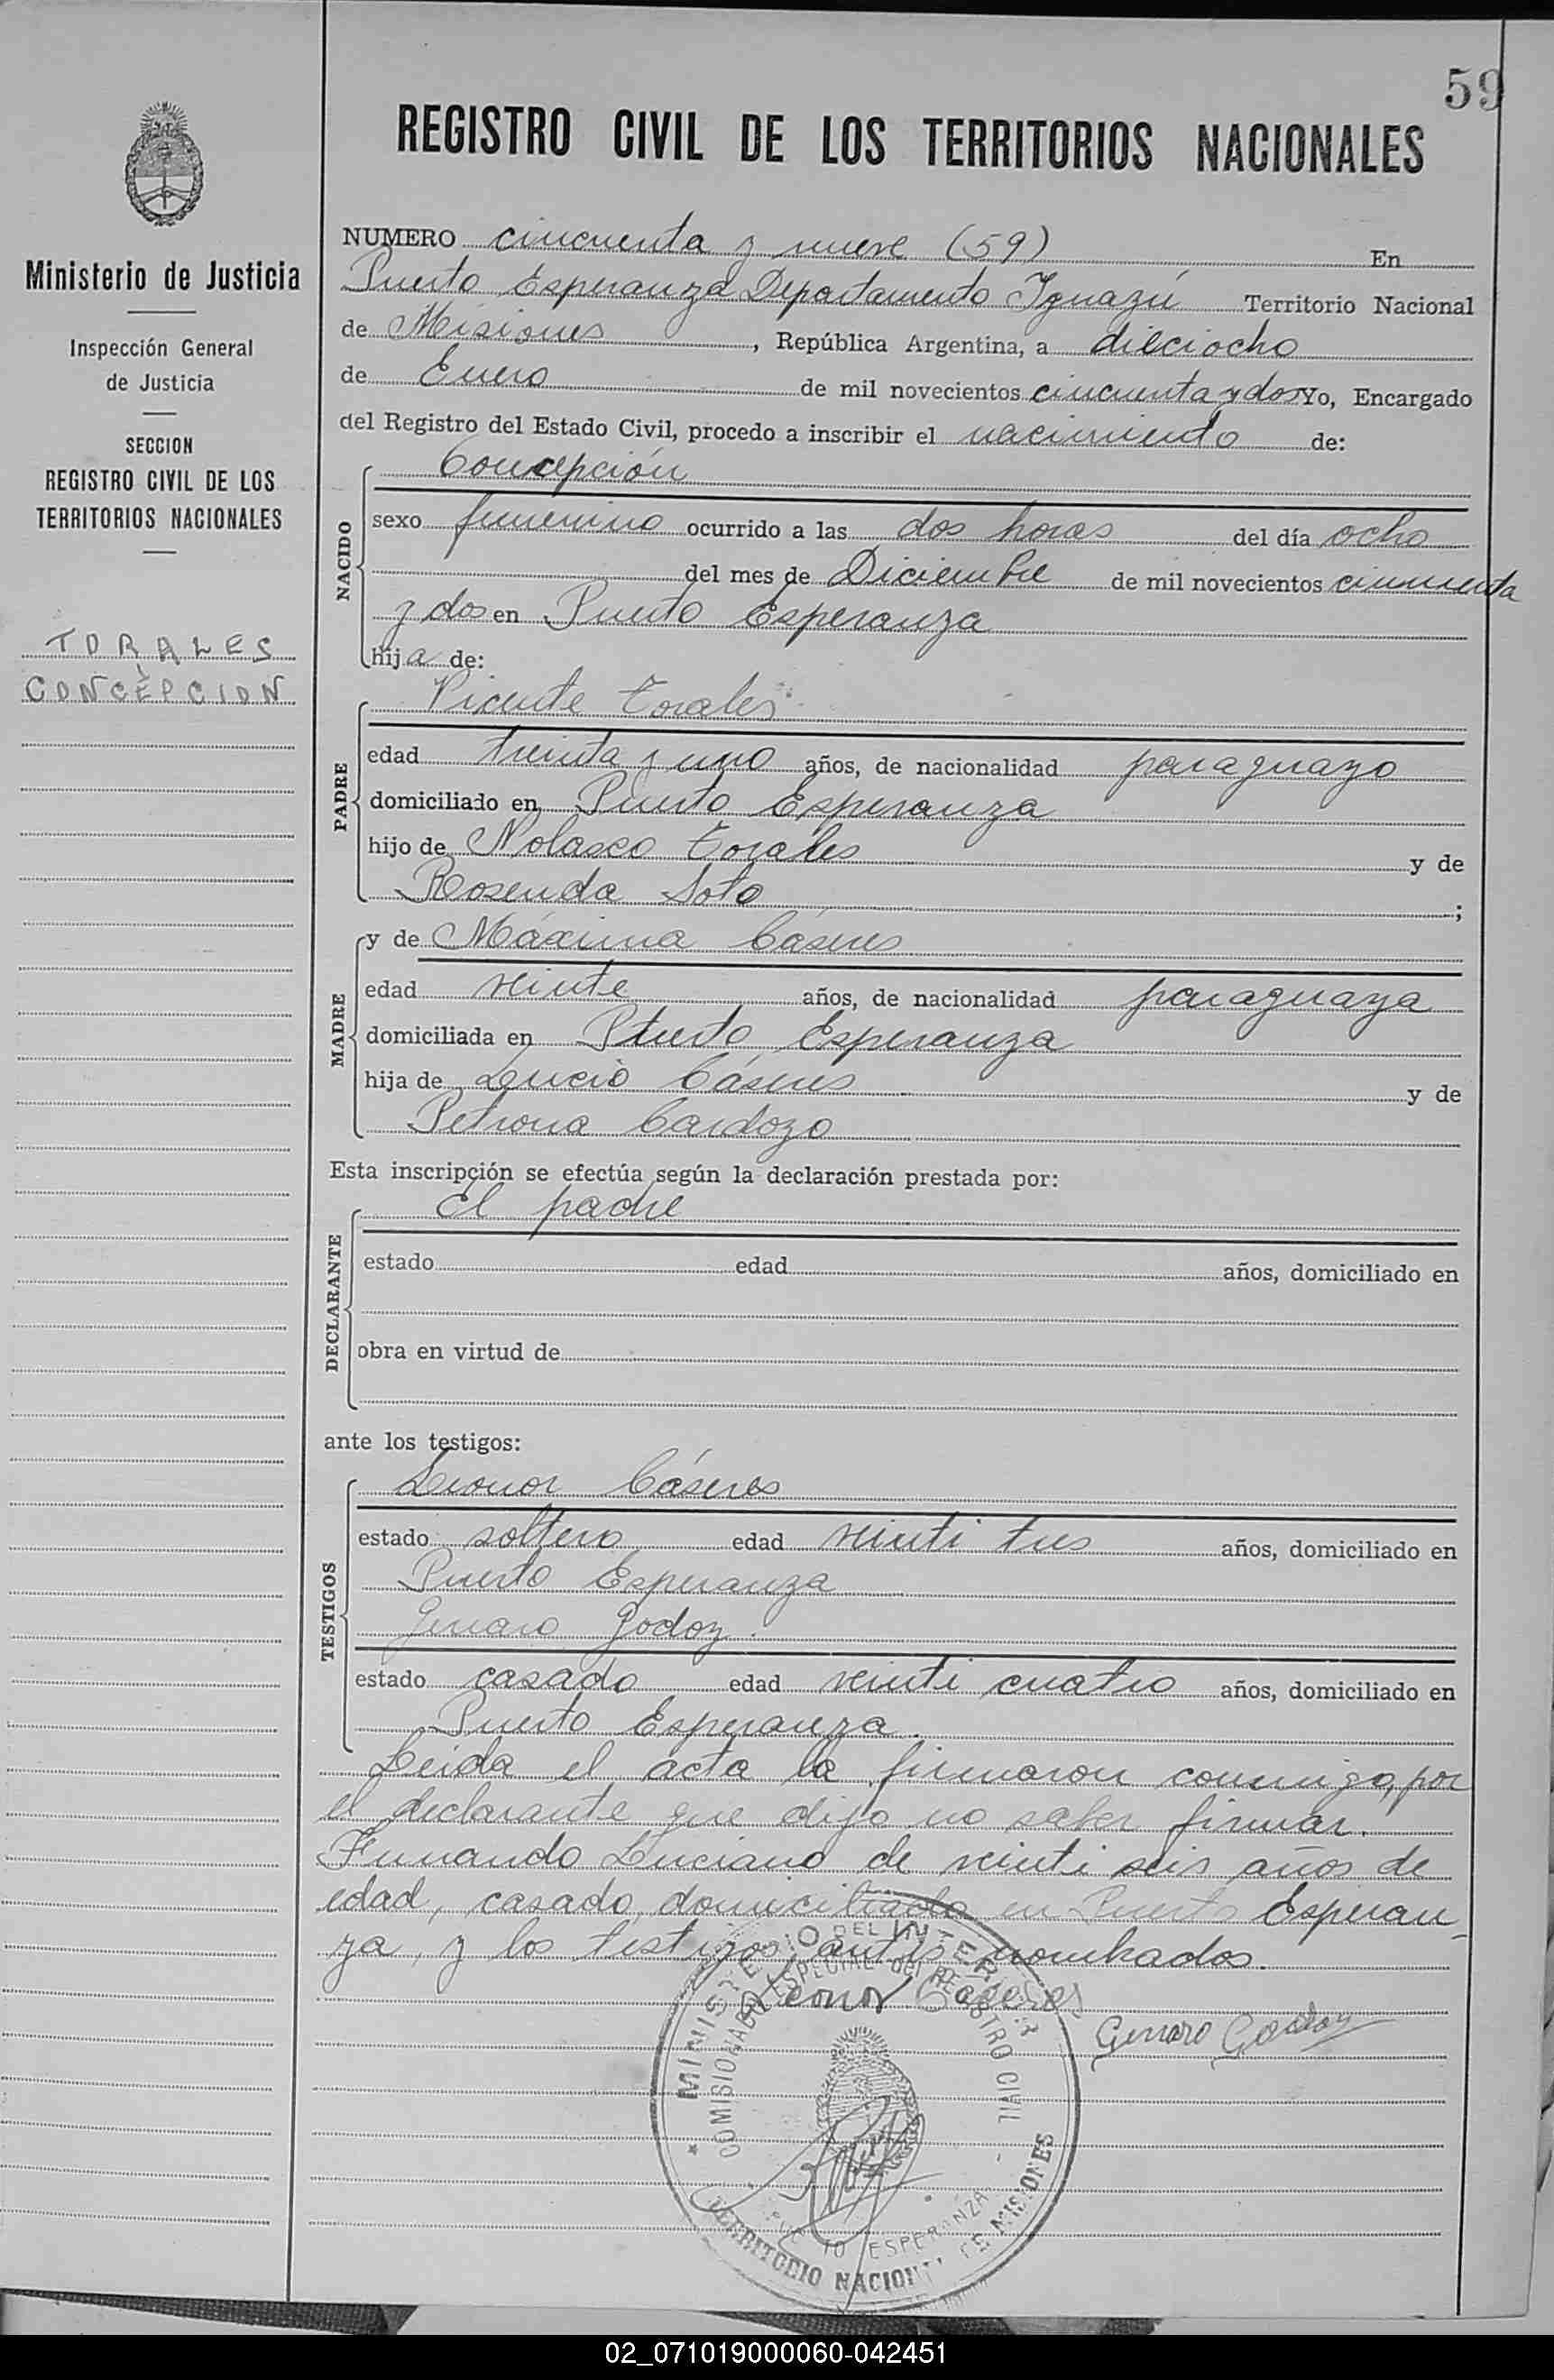 59
REGISTRO CIVIL DE LOS TERRITORIOS NACIONALES
Ministerio de Justicia
Inspección General
de Justicia
SECCION
REGISTRO CIVIL DE LOS
TERRITORIOS NACIONALES
TORALES
CONCEPCION
NUMERO cincuenta y nueve (59) En
Puerto Esperanza Departamento Iguazú Territorio Nacional
de Misiones, República Argentina, a dieciocho
de Enero de mil novecientos cincuenta y dos Yo, Encargado
del Registro del Estado Civil, procedo a inscribir el nacimiento de:
NACIDO
Concepción
sexo femenino ocurrido a las dos horas del día ocho
del mes de Diciembre de mil novecientos cincuenta
y dos en Puerto Esperanza
hija de:
PADRE
Vicente Torales
edad treinta y uno años, de nacionalidad paraguayo
domiciliado en Puerto Esperanza
hijo de Nolasco Torales y de
Rosenda Soto ;
MADRE
y de Máxima Cáseres
edad veinte años, de nacionalidad paraguaya
domiciliada en Puerto Esperanza
hija de Lucio Cáseres y de
Petrona Cardozo
Esta inscripción se efectúa según la declaración prestada por:
DECLARANTE
El padre
estado edad años, domiciliado en
obra en virtud de
ante los testigos:
TESTIGOS
Leonor Cáseres
estado soltero edad veinti tres años, domiciliado en
Puerto Esperanza
Genaro Godoy.
estado casado edad veinti cuatro años, domiciliado en
Puerto Esperanza.
Leida el acta la firmaron conmigo, por
el declarante que dijo no saber firmar.
Fernando Luciano de veinti seis años de
edad, casado, domiciliado en Puerto Esperan-
za, y los testigos antes nombrados.
Leonor Caseres
Genaro Godoy
MINISTERIO DEL INTERIOR
COMISIONADO ESPECIAL DEL REGISTRO CIVIL
PUERTO ESPERANZA
TERRITORIO NACIONAL DE MISIONES
02_071019000060-042451